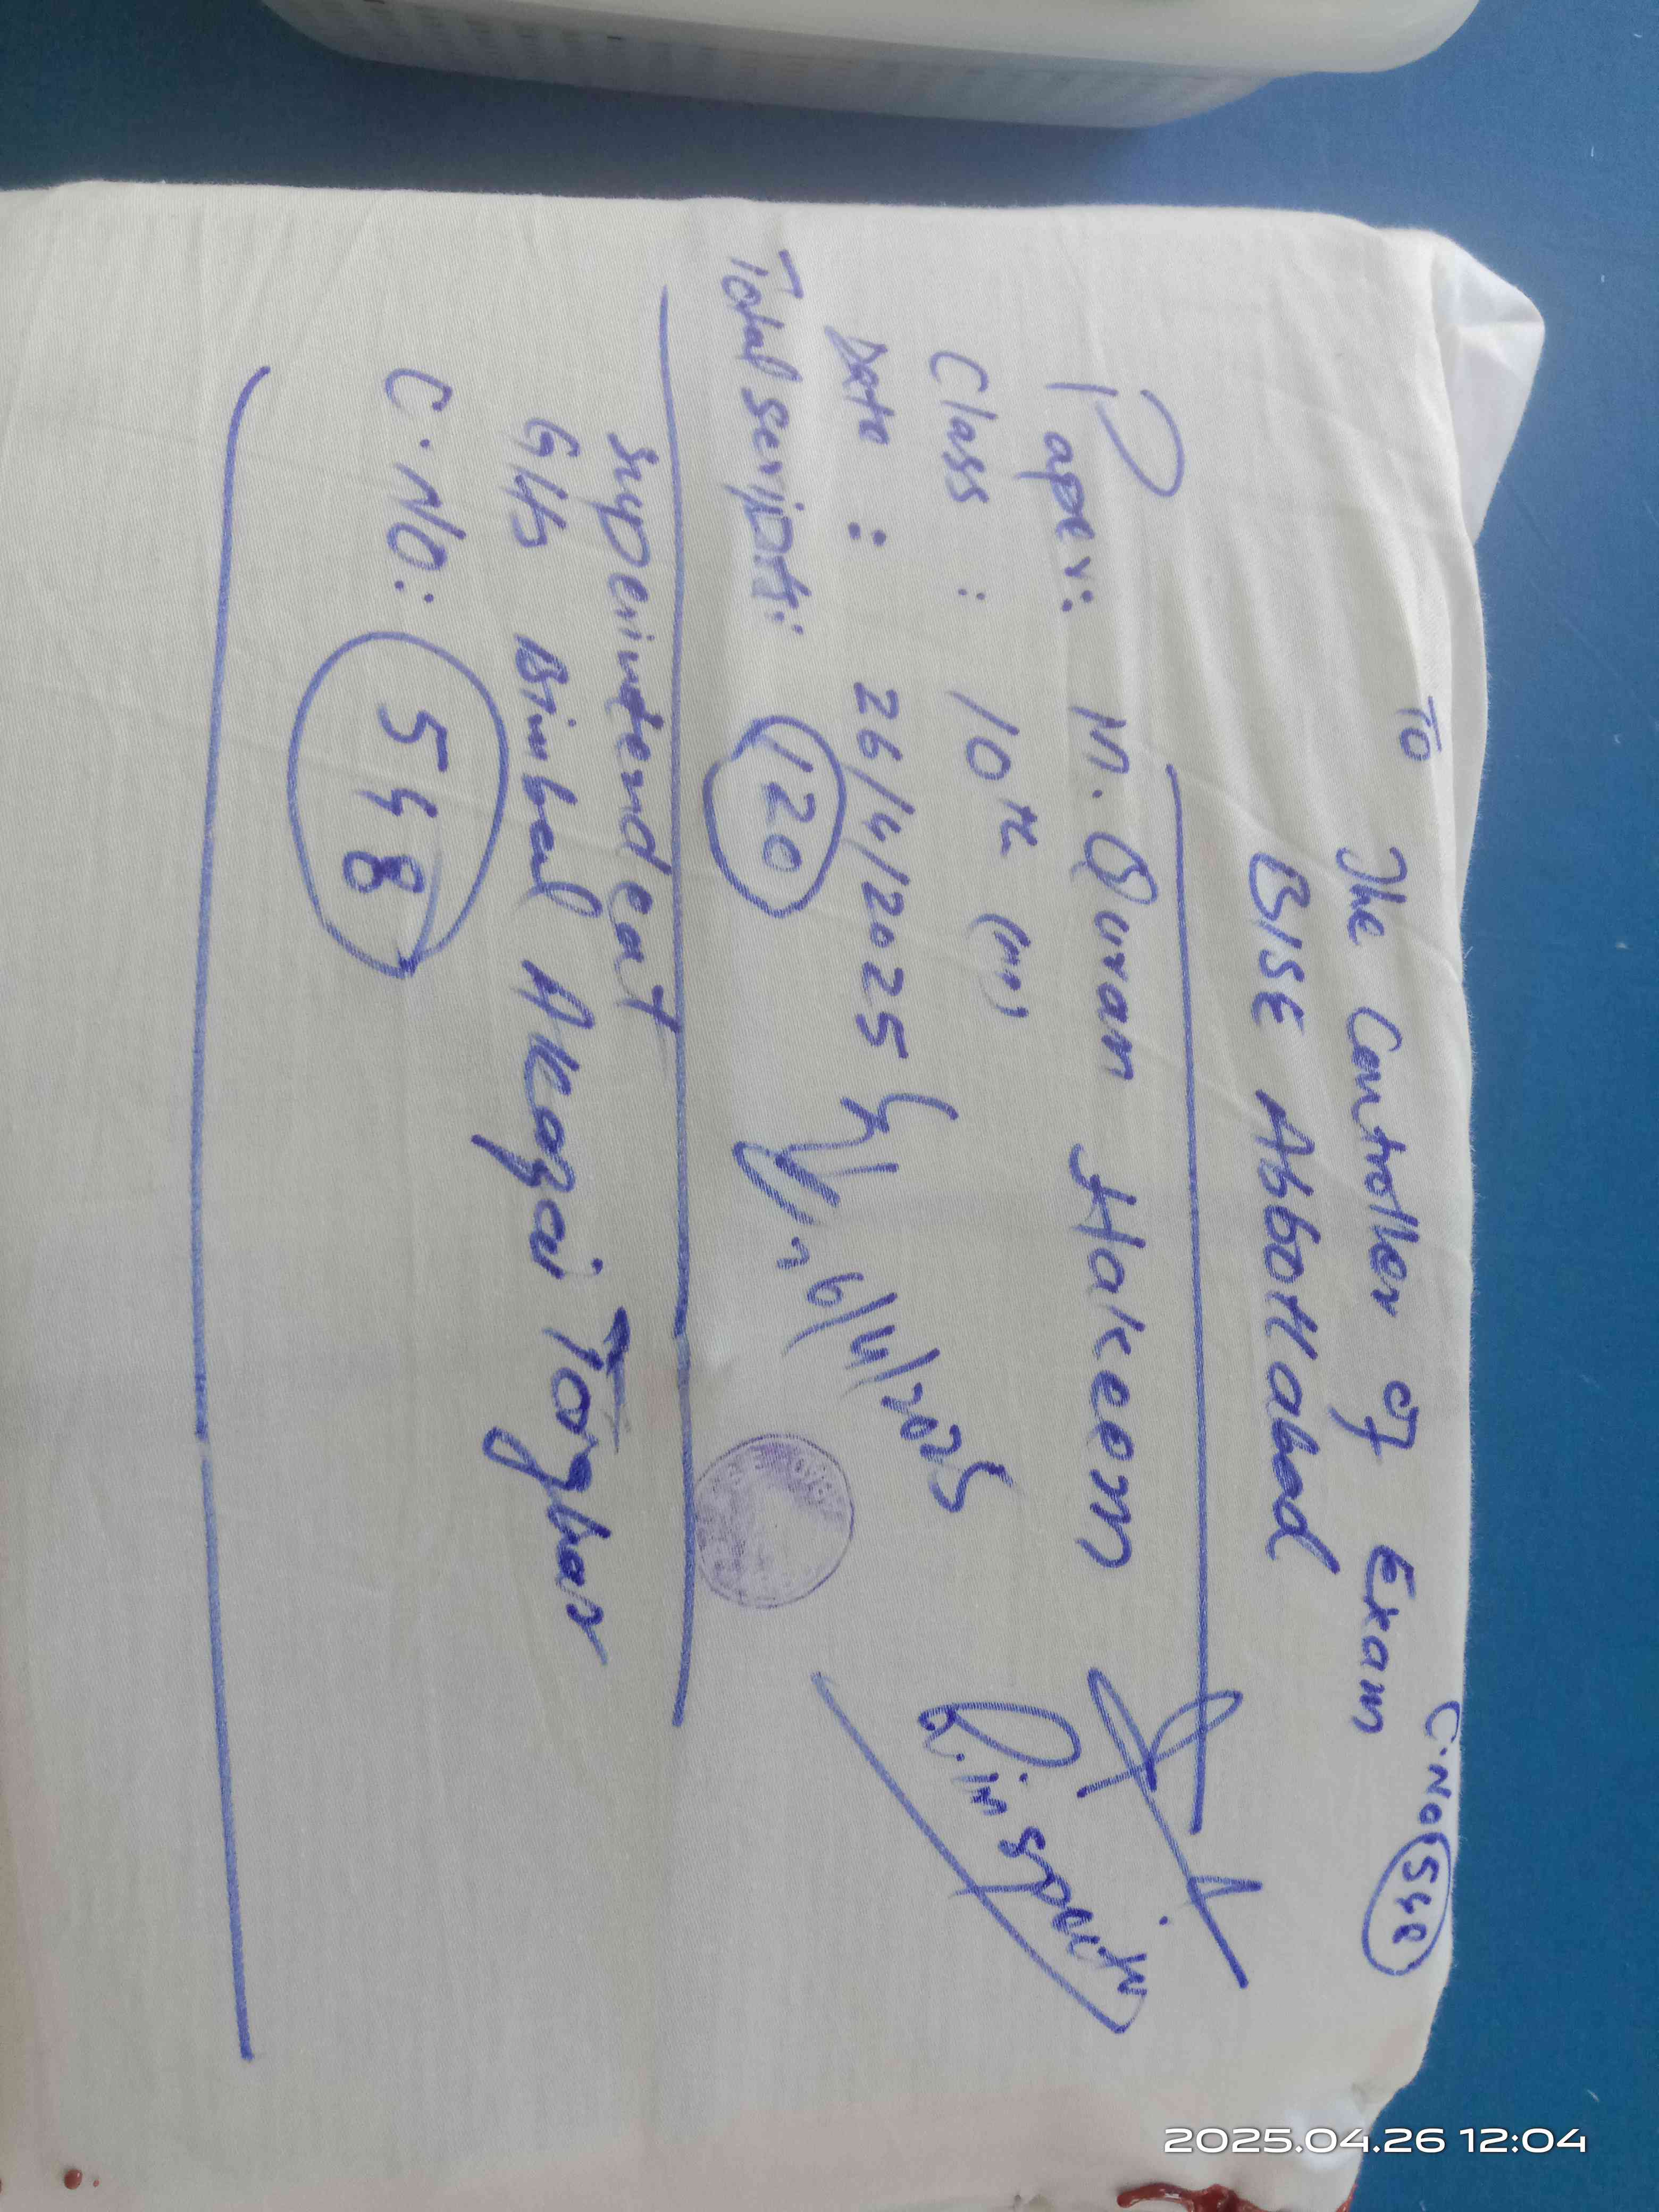 C.No 548
To
The Controller of Exam
BISE Abbottabad
Paper: M. Quran Hakeem
Class : 10th (M)
Date : 26/4/2025
26/4/2025
Total scripts: 120
Superintendent
GHS Bimbal Akazai Torghar
C.No: 548
2025.04.26 12:04